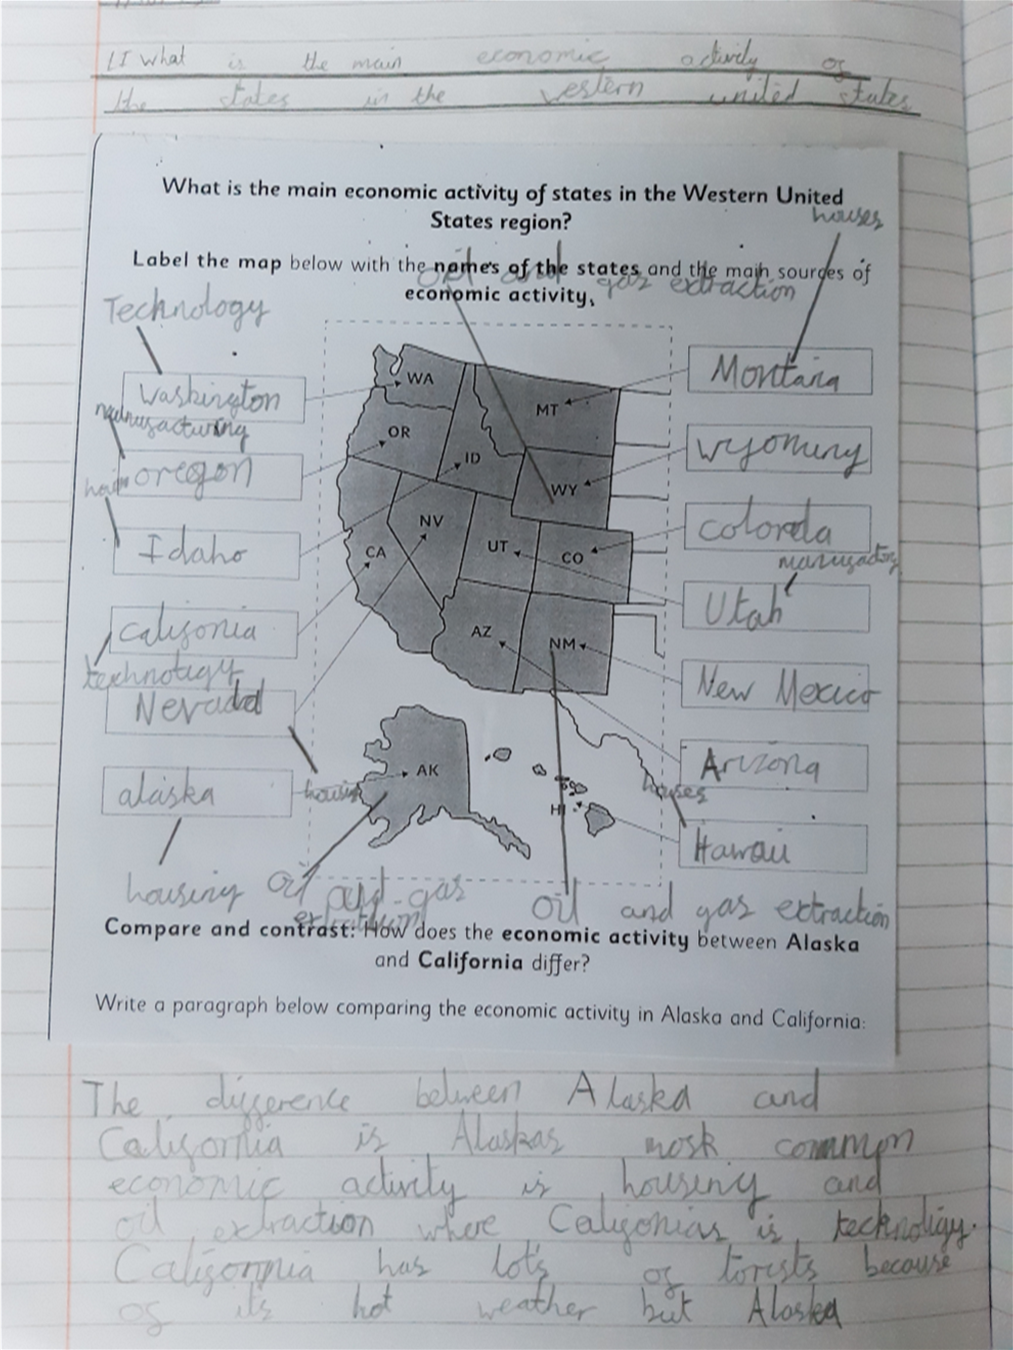 LI What is the main economic activity of
the states in the western united states
What is the main economic activity of states in the Western United
States region?
houses
Label the map below with the names of the states and the main sources of
economic activity.
oil and gas extraction
Technology
Washington
manufacturing
oregon
Idaho
califonia
technoligy
Nevada
housing
alaska
housing
oil and gas
extraction
WA
OR
ID
MT
WY
NV
UT
CO
CA
AZ
NM
AK
HI
Montana
wyominy
colorda
manufacting
Utah
New Mexico
Arizona
houses
Hawaii
oil and gas extraction
Compare and contrast: How does the economic activity between Alaska
and California differ?
Write a paragraph below comparing the economic activity in Alaska and California:
The difference between Alaska and
California is Alaskas most common
economic activity is housing and
oil extraction where Califonias is technoligy.
California has lots of torists because
of its hot weather but Alaska